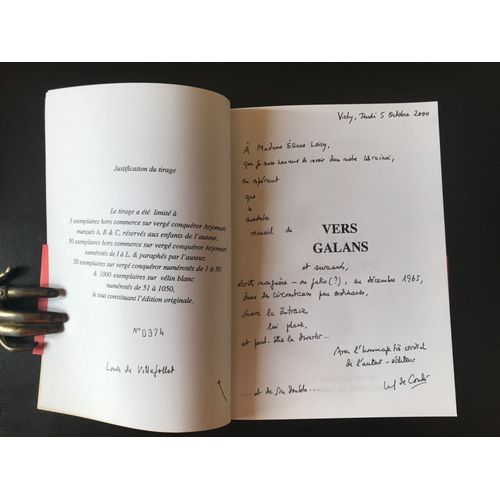 Justification du tirage
Le tirage a été limité à
3 exemplaires hors commerce sur vergé conquéror Arjomari
marqués A, B & C, réservés aux enfants de l'auteur,
50 exemplaires hors commerce sur vergé conquéror Arjomari
numérotés de I à L, & paraphés par l'auteur,
50 exemplaires sur vergé conquéror numérotés de 1 à 50
& 1000 exemplaires sur vélin blanc
numérotés de 51 à 1050,
le tout constituant l'édition originale.
N° 0374
Louis de Villefollet
Vichy, Jeudi 5 Octobre 2000
À Madame Éliane Loisy,
que je suis heureux de revoir dans notre librairie,
en espérant
que
ce
modeste
recueil de
VERS
GALANS
et suivants,
écrits naguère - ou jadis (?), en décembre 1965,
dans des circonstances peu ordinaires,
saura la distraire,
lui plaire,
et peut-être la divertir...
Avec l'hommage très cordial
de l'auteur-éditeur
...et de son double...